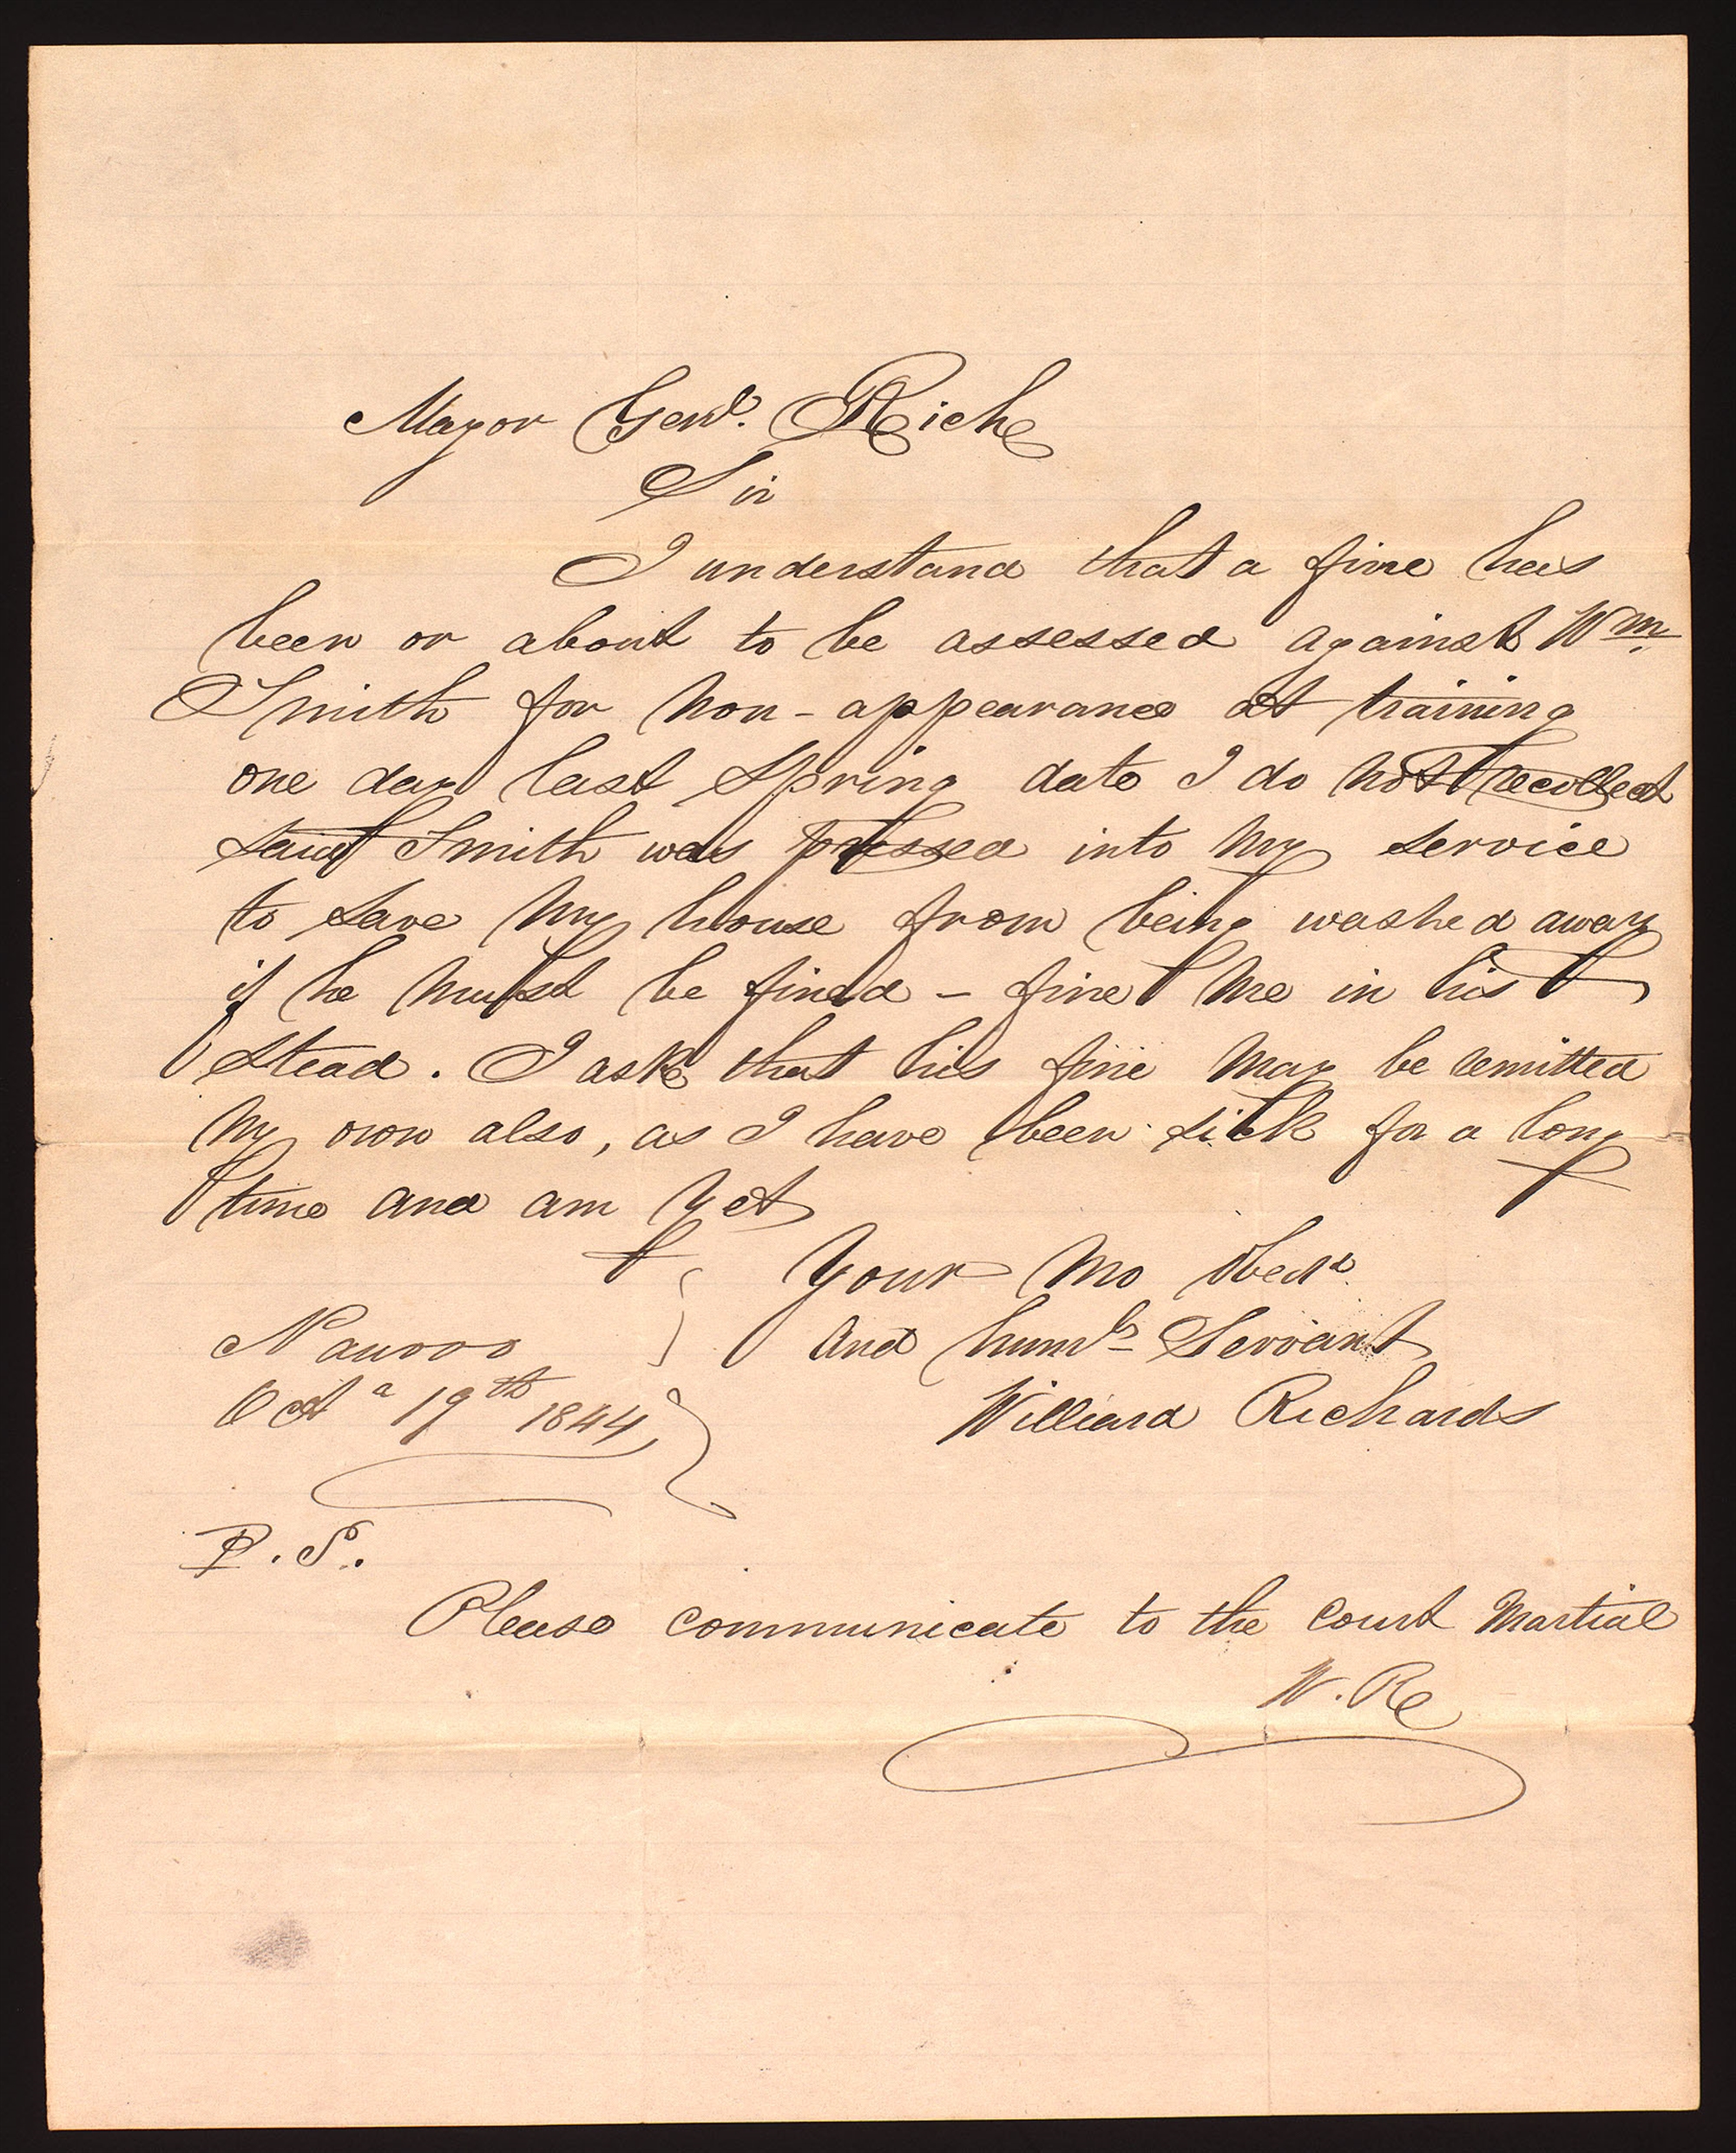 Mayor Genl. Rich
Sir
I understand that a fine has
been or about to be assessed against Wm.
Smith for non-appearance at training
one day last Spring date I do not recollect
said Smith was pressed into my service
to save my house from being washed away
if he must be fined - fine me in his
stead. I ask that his fine may be remitted
my own also, as I have been sick for a long
time and am yet
Your mo obedt
and humb Servant
Nauvoo
Oct 19th 1844
Willard Richards
P.S.
Please communicate to the court martial
W. R